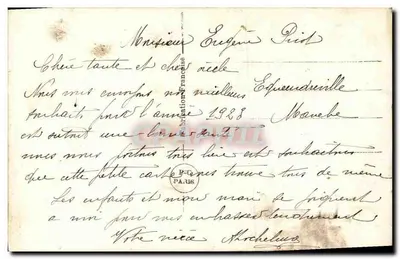 Monsieur Eugène Piot
Chère tante et cher oncle
Nous vous envoyons nos meilleurs
Equeurdreville
souhaits pour l'année 1928
Manche
et surtout une bonne santé
nous nous portons très bien et souhaitons
que cette petite carte vous trouve tous de même
Les enfants et mon mari se joignent
a moi pour vous embrasser tendrement
Votre nièce
Fabrication Française
PARIS